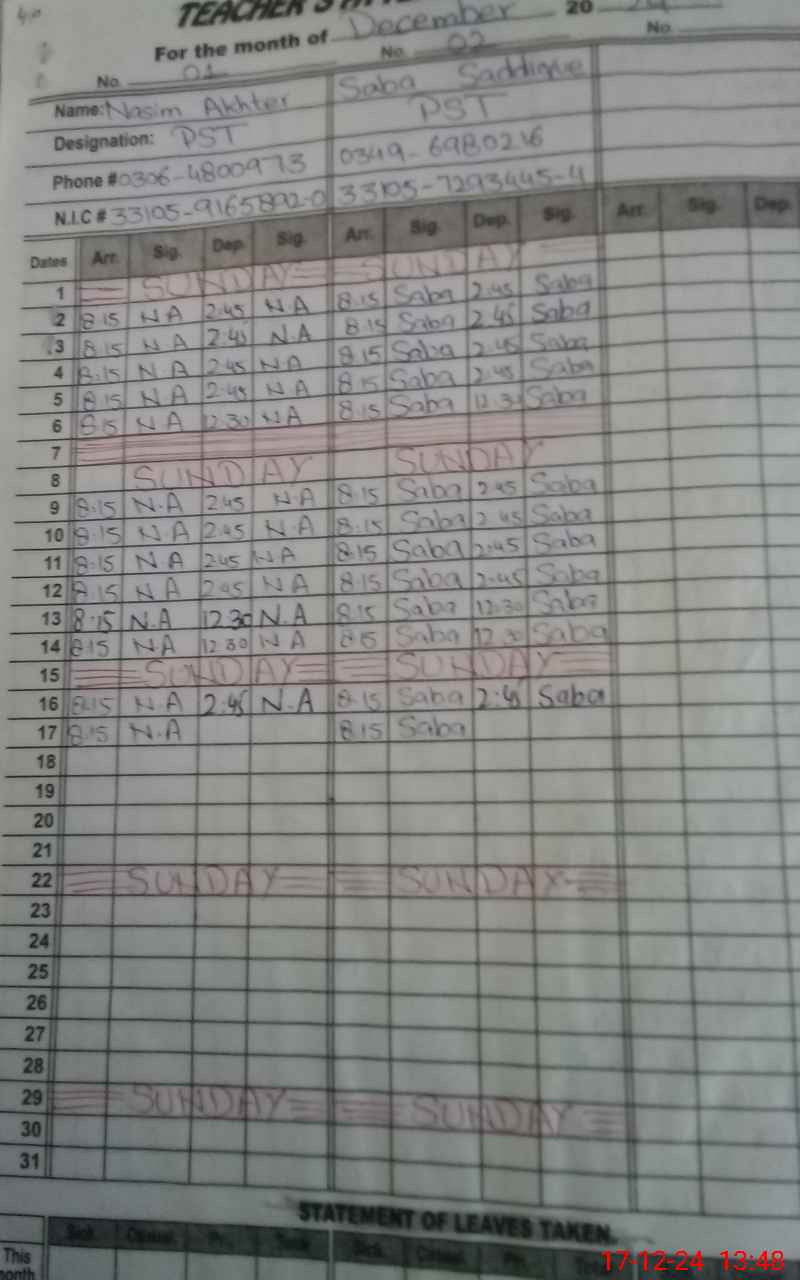 TEACHER'S
For the month of December 20 24
No. 01 No. 02 No.
Name: Nasim Akhter Saba Saddique
Designation: PST PST
Phone # 0306-4800973 0349-6980216
N.I.C # 33105-9165892-0 33105-7293445-4
Dates Arr. Sig. Dep. Sig. Arr. Sig. Dep. Sig. Arr. Sig. Dep.
1 SUNDAY SUNDAY
2 8.15 N A 2.45 N.A 8.15 Saba 2.45 Saba
3 8.15 N A 2.45 N.A 8.15 Saba 2.45 Saba
4 8.15 N.A 2.45 N.A 8.15 Saba 2.45 Saba
5 8.15 N.A 2.45 N.A 8.15 Saba 2.45 Saba
6 8.15 N A 12.30 N A 8.15 Saba 12.30 Saba
7
8 SUNDAY SUNDAY
9 8.15 N.A 2.45 N.A 8.15 Saba 2.45 Saba
10 8.15 N.A 2.45 N.A 8.15 Saba 2.45 Saba
11 8.15 N.A 2.45 N.A 8.15 Saba 2.45 Saba
12 8.15 N A 2.45 N A 8.15 Saba 2.45 Saba
13 8.15 N.A 12.30 N.A 8.15 Saba 12.30 Saba
14 8.15 N A 12.30 N A 8.15 Saba 12.30 Saba
15 SUNDAY SUNDAY
16 8.15 N A 2.45 N.A 8.15 Saba 2.45 Saba
17 8.15 N.A 8.15 Saba
18
19
20
21
22 SUNDAY SUNDAY
23
24
25
26
27
28
29 SUNDAY SUNDAY
30
31
STATEMENT OF LEAVES TAKEN.
Sick. Casual. Sick. Casual.
This month
17-12-24 13:48